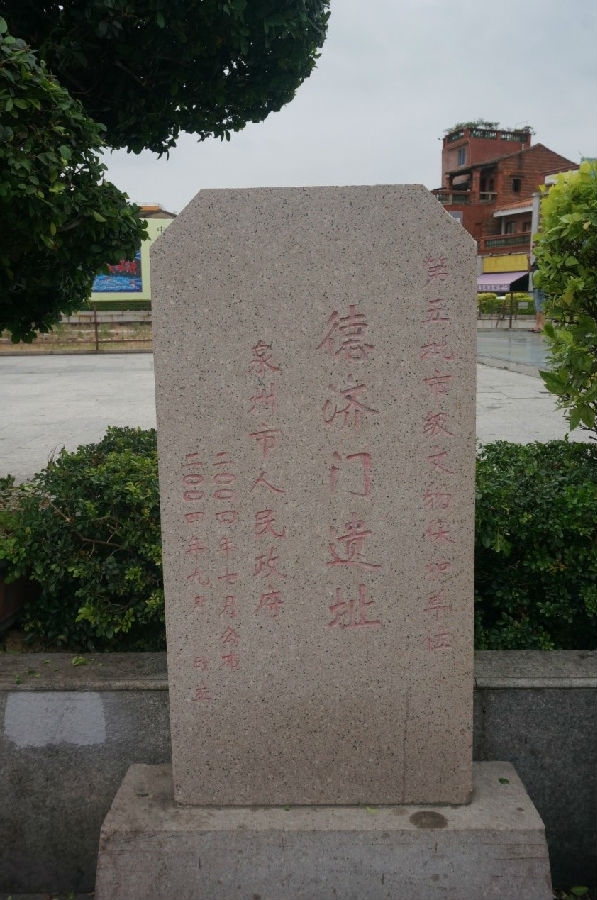 第五批市级文物保护单位
德济门遗址
泉州市人民政府
二〇〇四年七月公布
二〇〇四年九月 日立